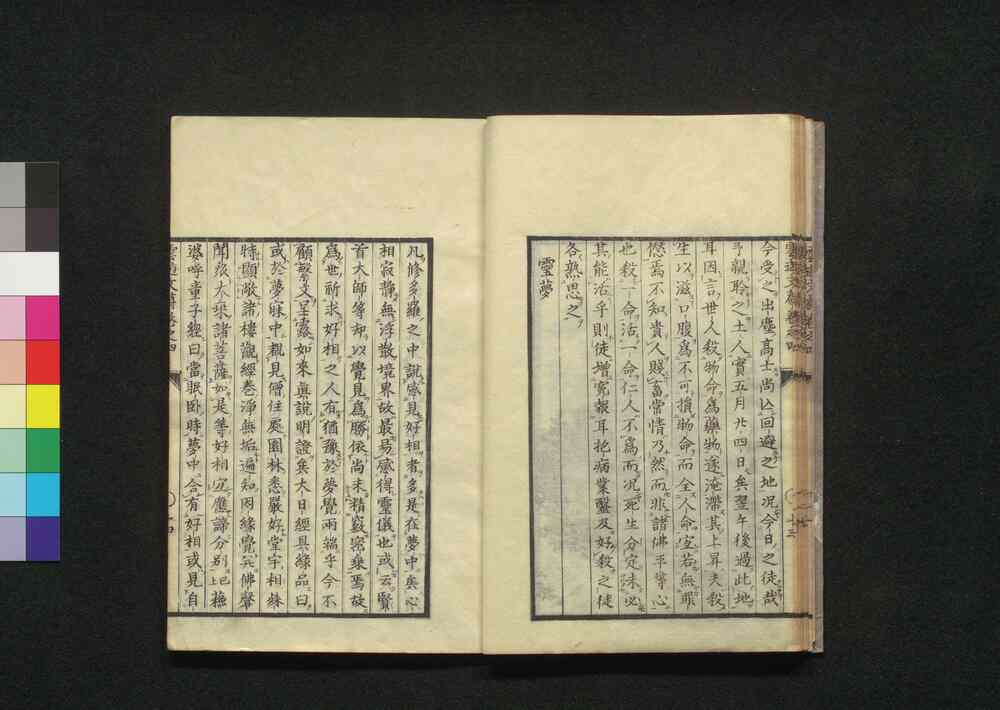 今受之出塵高士尚以回避之地況今日之徒哉
予親聆之土人實五月廿四日矣翌午後過此地
耳因言世人殺物命爲藥物遂淹滯其上昇夫殺
生以滋口腹爲不可損物命而全人命宜若無罪
儻焉不知貴人賤畜常情乃然而非諸佛平等心
也殺一命活一命仁人不爲而況死生分定未必
其能活乎則徒增寃報耳抱病業醫及好殺之徒
各熟思之
靈夢
凡修多羅之中說感見好相者多是在夢中矣心
相寂靜無浮散境界故最易感得靈儀也或云賢
首大師等却以覺見爲勝依尚未精覈密乘焉故
爲世祈求好相之人有猶豫於夢覺兩端乎今不
顧繁文呈露如來眞說明證矣大日經具緣品曰
或於夢寐中覩見僧住處園林悉嚴好堂宇相殊
特顯敞諸樓觀經卷淨無垢遍知因緣覺并佛聲
聞衆大乘諸菩薩如是等好相宜應諦分別已上蘇
婆呼童子經曰當眠臥時夢中合有好相或見自
雲遊文藁卷之四
十四